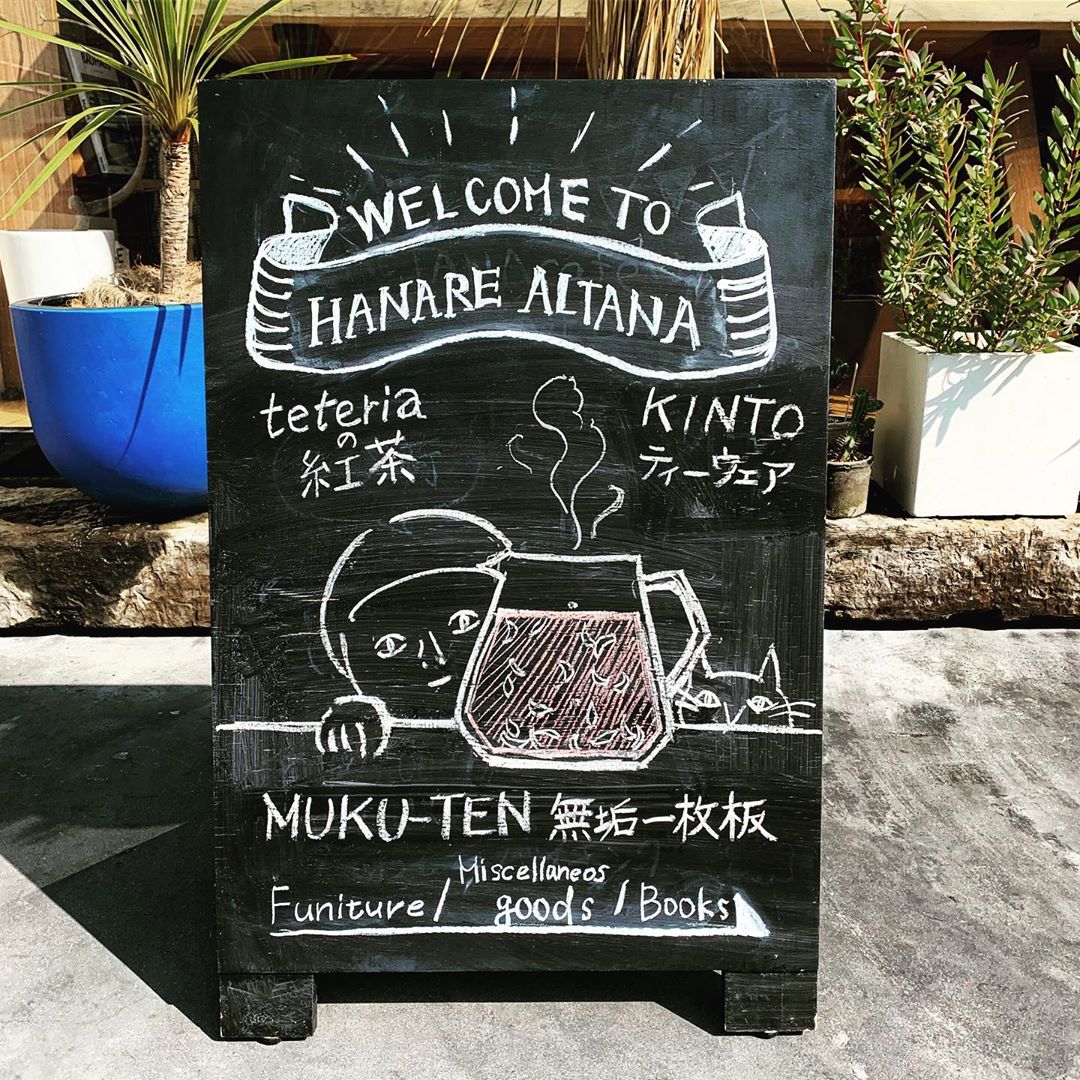 WELCOME TO
HANARE ALTANA
teteria
の
紅茶
KINTO
ティーウェア
MUKU-TEN 無垢一枚板
Miscellaneos
Funiture / goods / Books